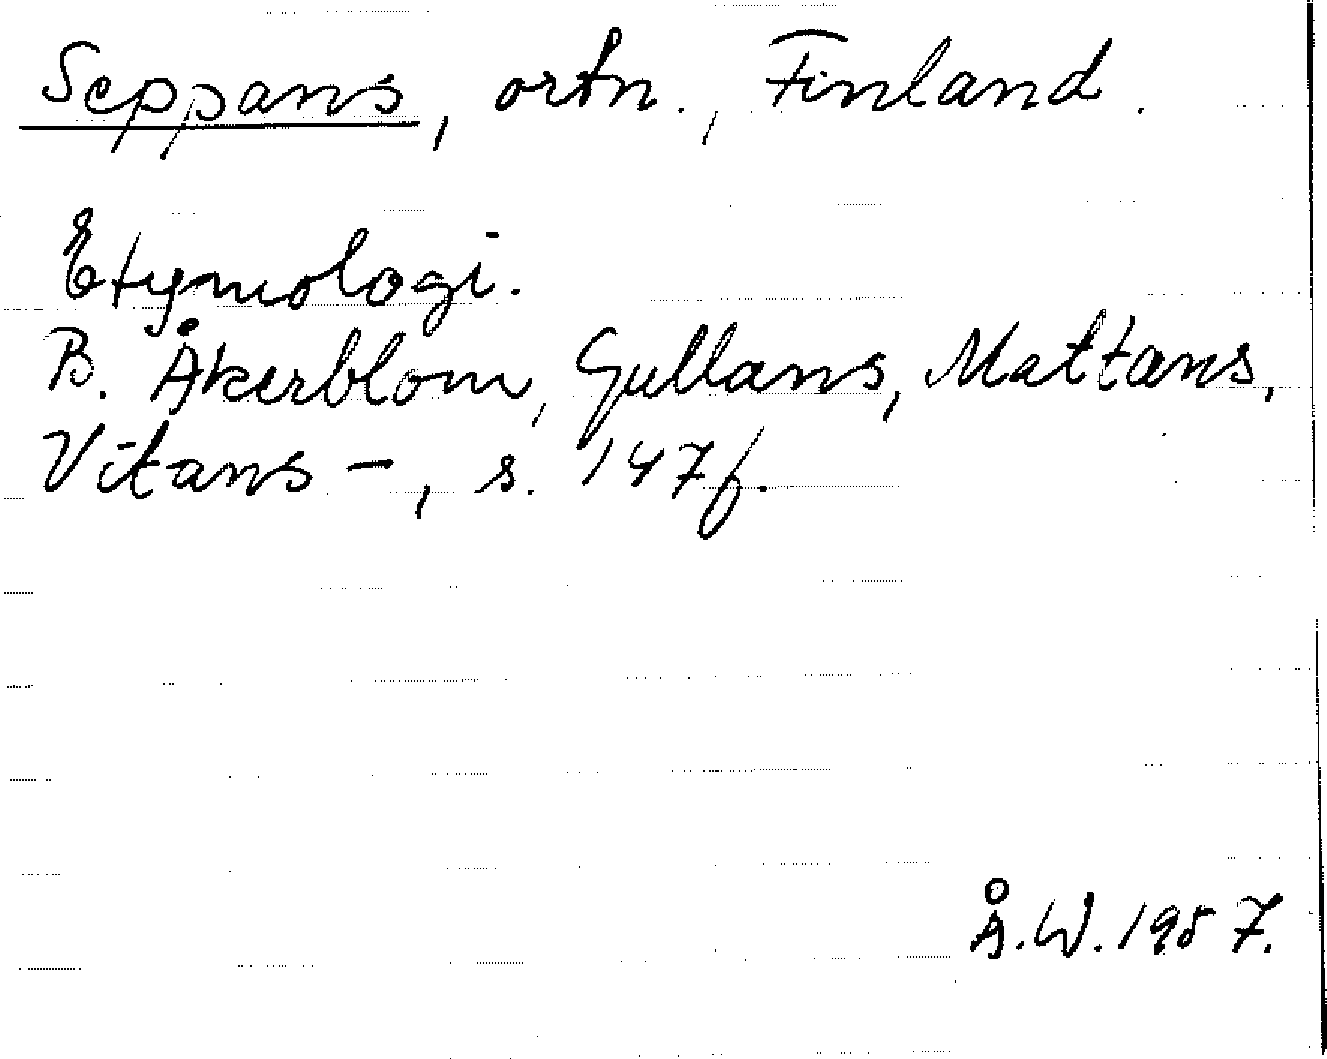 Seppans, ortn., Finland.
Etymologi.
B. Åkerblom, Gullans, Mattans,
Vitans -, s. 147f.
Å.W. 1987.